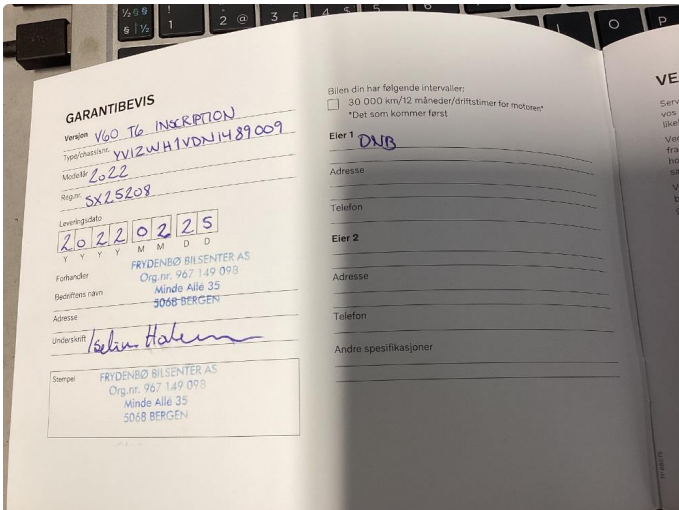 GARANTIBEVIS
Versjon V60 T6 INSCRIPTION
Type/chassisnr. YV1ZWH1VDN1489009
Modellår 2022
Reg.nr. SX25208
Leveringsdato
2 0 2 2 0 2 2 5
Y Y Y Y M M D D
Forhandler
FRYDENBØ BILSENTER AS
Org.nr. 967 149 098
Bedriftens navn
Minde Allé 35
5068 BERGEN
Adresse
Underskrift Iselin
Stempel
FRYDENBØ BILSENTER AS
Org.nr. 967 149 098
Minde Allé 35
5068 BERGEN
Bilen din har følgende intervaller:
30 000 km/12 måneder/driftstimer for motoren*
*Det som kommer først
Eier 1 DNB
Adresse
Telefon
Eier 2
Adresse
Telefon
Andre spesifikasjoner
VE
Serv
vos
like